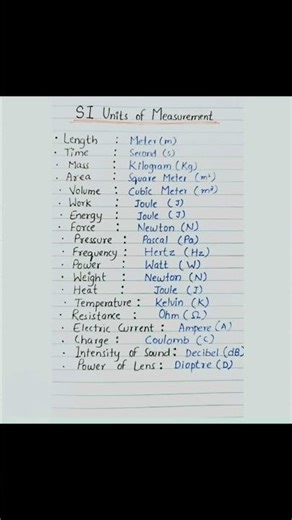 SI Units of Measurement
• Length : Meter (m)
• Time : Second (s)
• Mass : Kilogram (Kg)
• Area : Square Meter (m²)
• Volume : Cubic Meter (m³)
• Work : Joule (J)
• Energy : Joule (J)
• Force : Newton (N)
• Pressure : Pascal (Pa)
• Frequency : Hertz (Hz)
• Power : Watt (W)
• Weight : Newton (N)
• Heat : Joule (J)
• Temperature : Kelvin (K)
• Resistance : Ohm (Ω)
• Electric Current : Ampere (A)
• Charge : Coulomb (C)
• Intensity of Sound : Decibel (dB)
• Power of Lens : Dioptre (D)